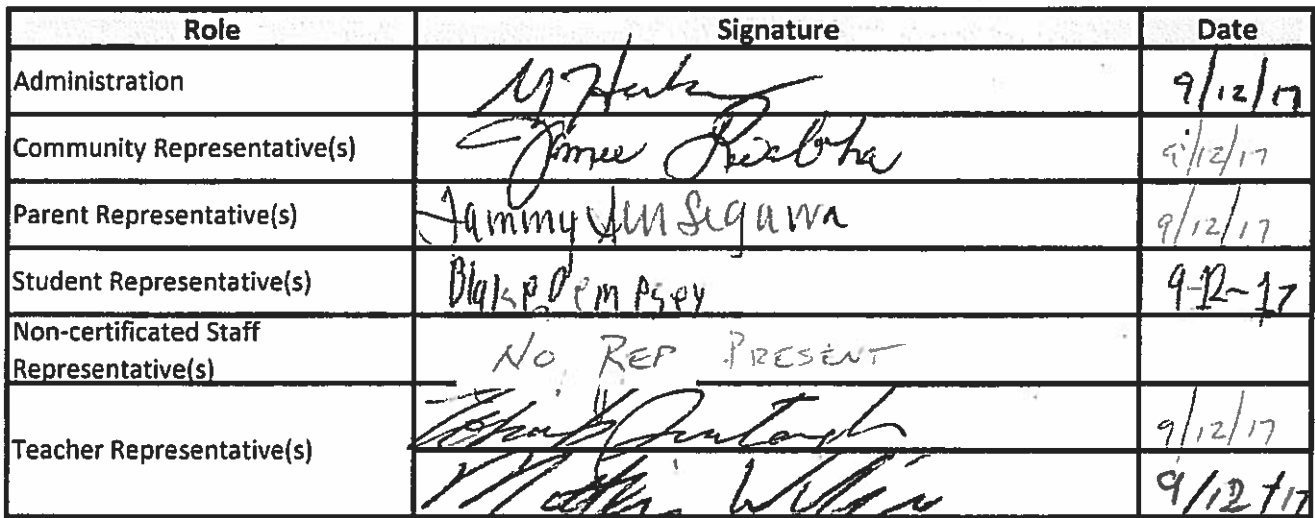 Role Signature Date
Administration 9/12/17
Community Representative(s) 9/12/17
Parent Representative(s) Tammy 9/12/17
Student Representative(s) Blake Dempsey 9-12-17
Non-certificated Staff
Representative(s) NO REP PRESENT
Teacher Representative(s) 9/12/17
9/12/17